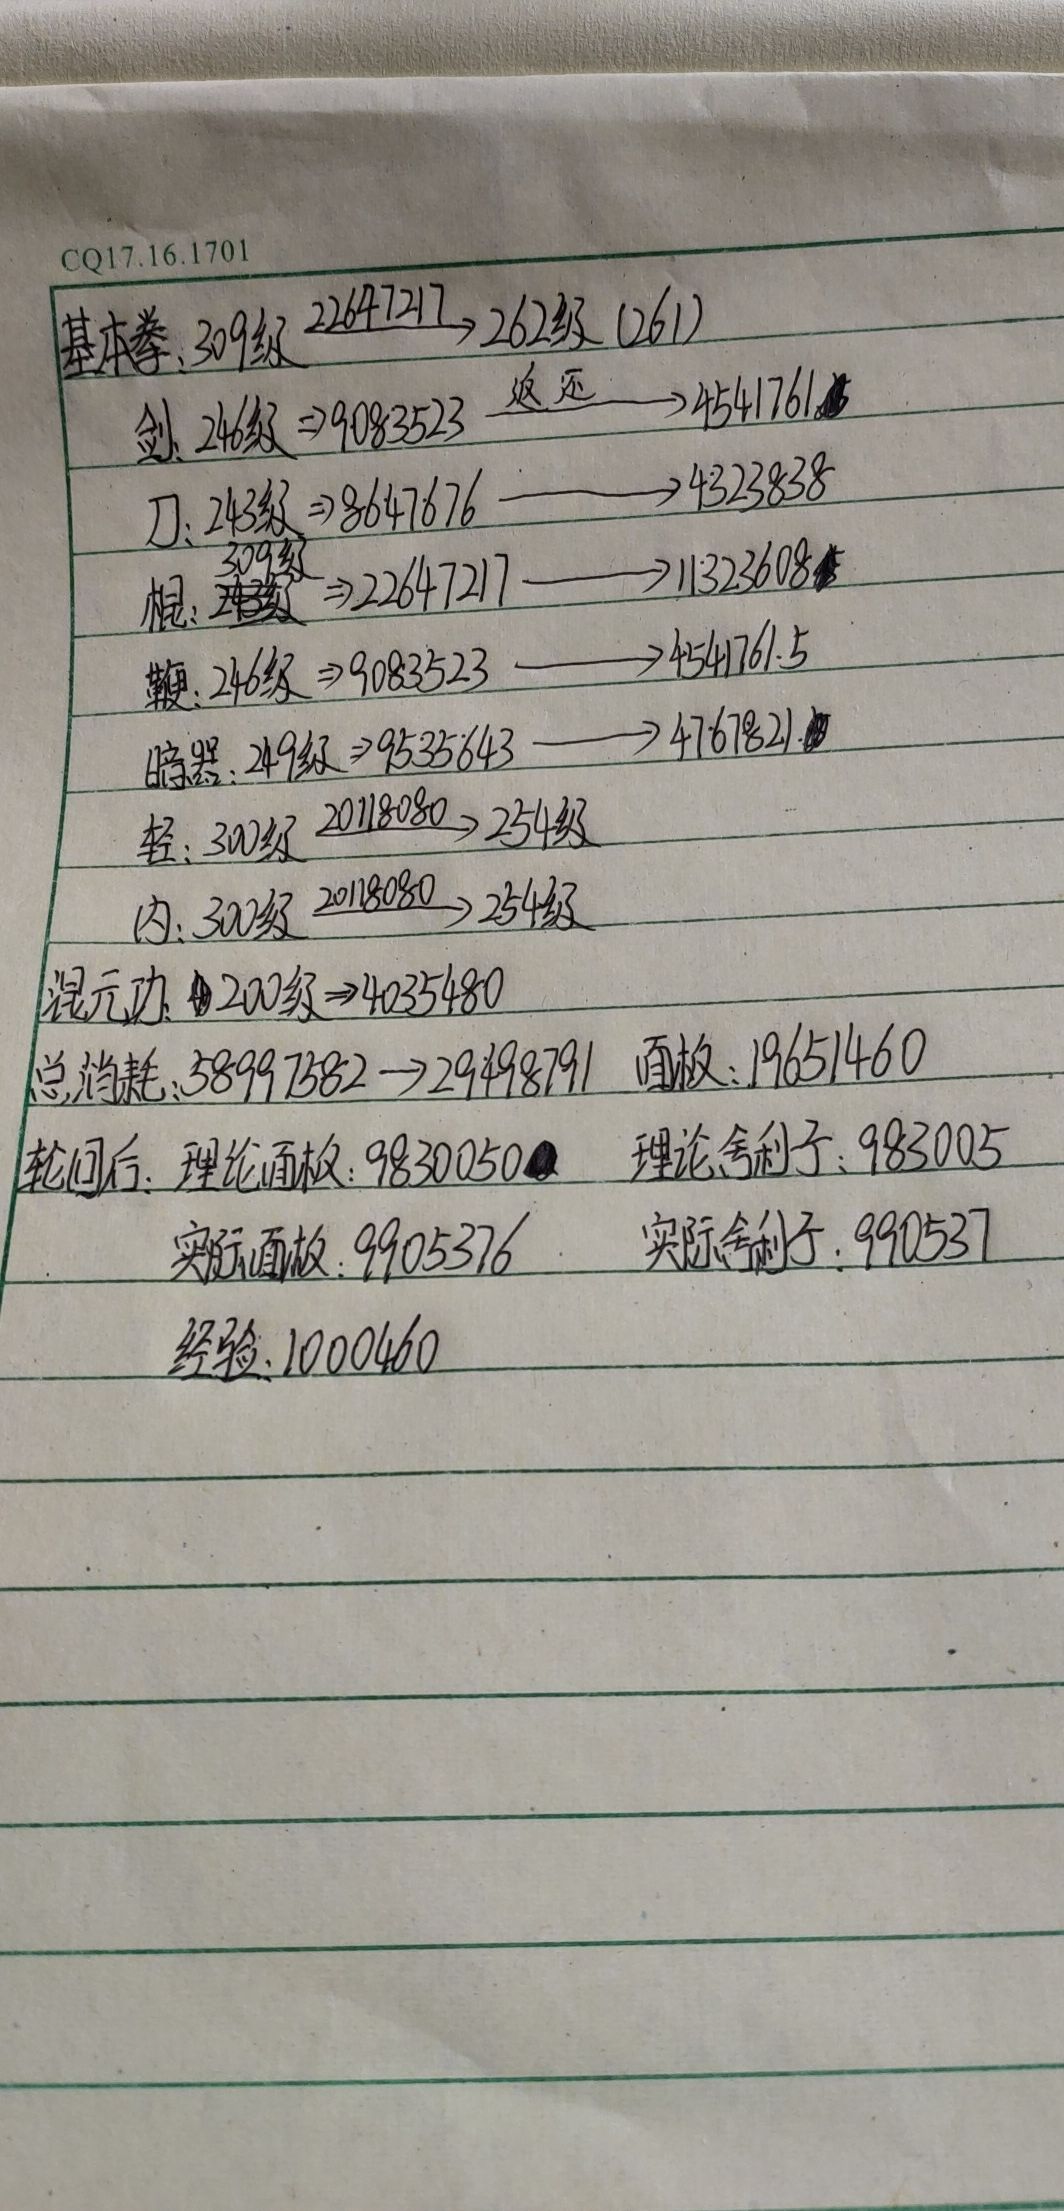 CQ17.16.1701
基本拳:309级 22647217→262级(261)
剑:246级⇒9083523 返还→4541761
刀:243级⇒8647676→4323838
棍:309级⇒22647217→11323608
鞭:246级⇒9083523→4541761.5
暗器:249级⇒9535643→4767821.
轻:300级 20118080→254级
内:300级 20118080→254级
混元功:200级⇒4035480
总消耗:58997582→29498791 面板:19651460
轮回后:理论面板:9830050 理论舍利子:983005
实际面板:9905376 实际舍利子:990537
经验:1000460